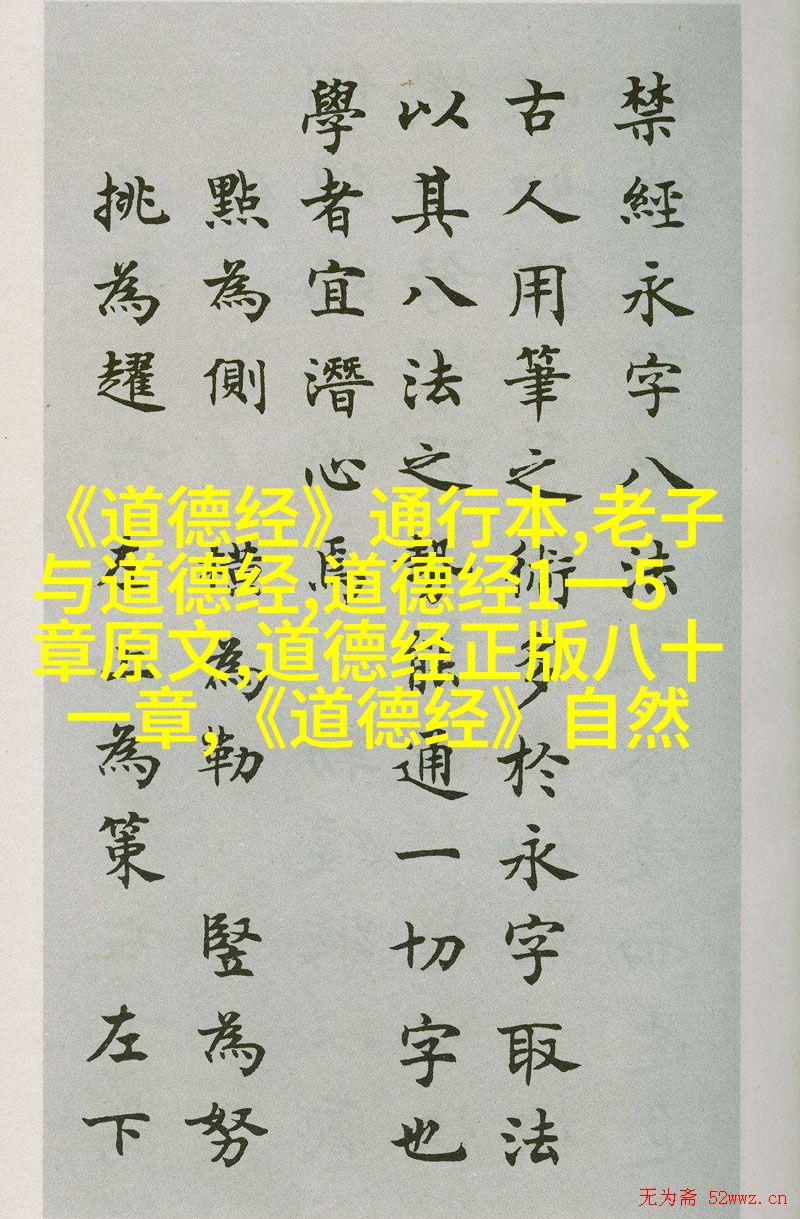 禁經永字八法
古人用筆之術多於永字取法
以其八法之勢能通一切字也
學者宜潛心焉
點為側 橫為勒 豎為努
挑為趯 左上為策 左下
《道德经》通行本,老子
与道德经,道德经1一5
章原文,道德经正版八十
一章,《道德经》自然
无为斋 52wwz.cn